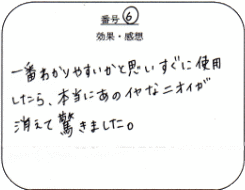 番号 ⑥
効果・感想
一番わかりやすいかと思いすぐに使用
したら、本当にあのイヤなニオイが
消えて驚きました。